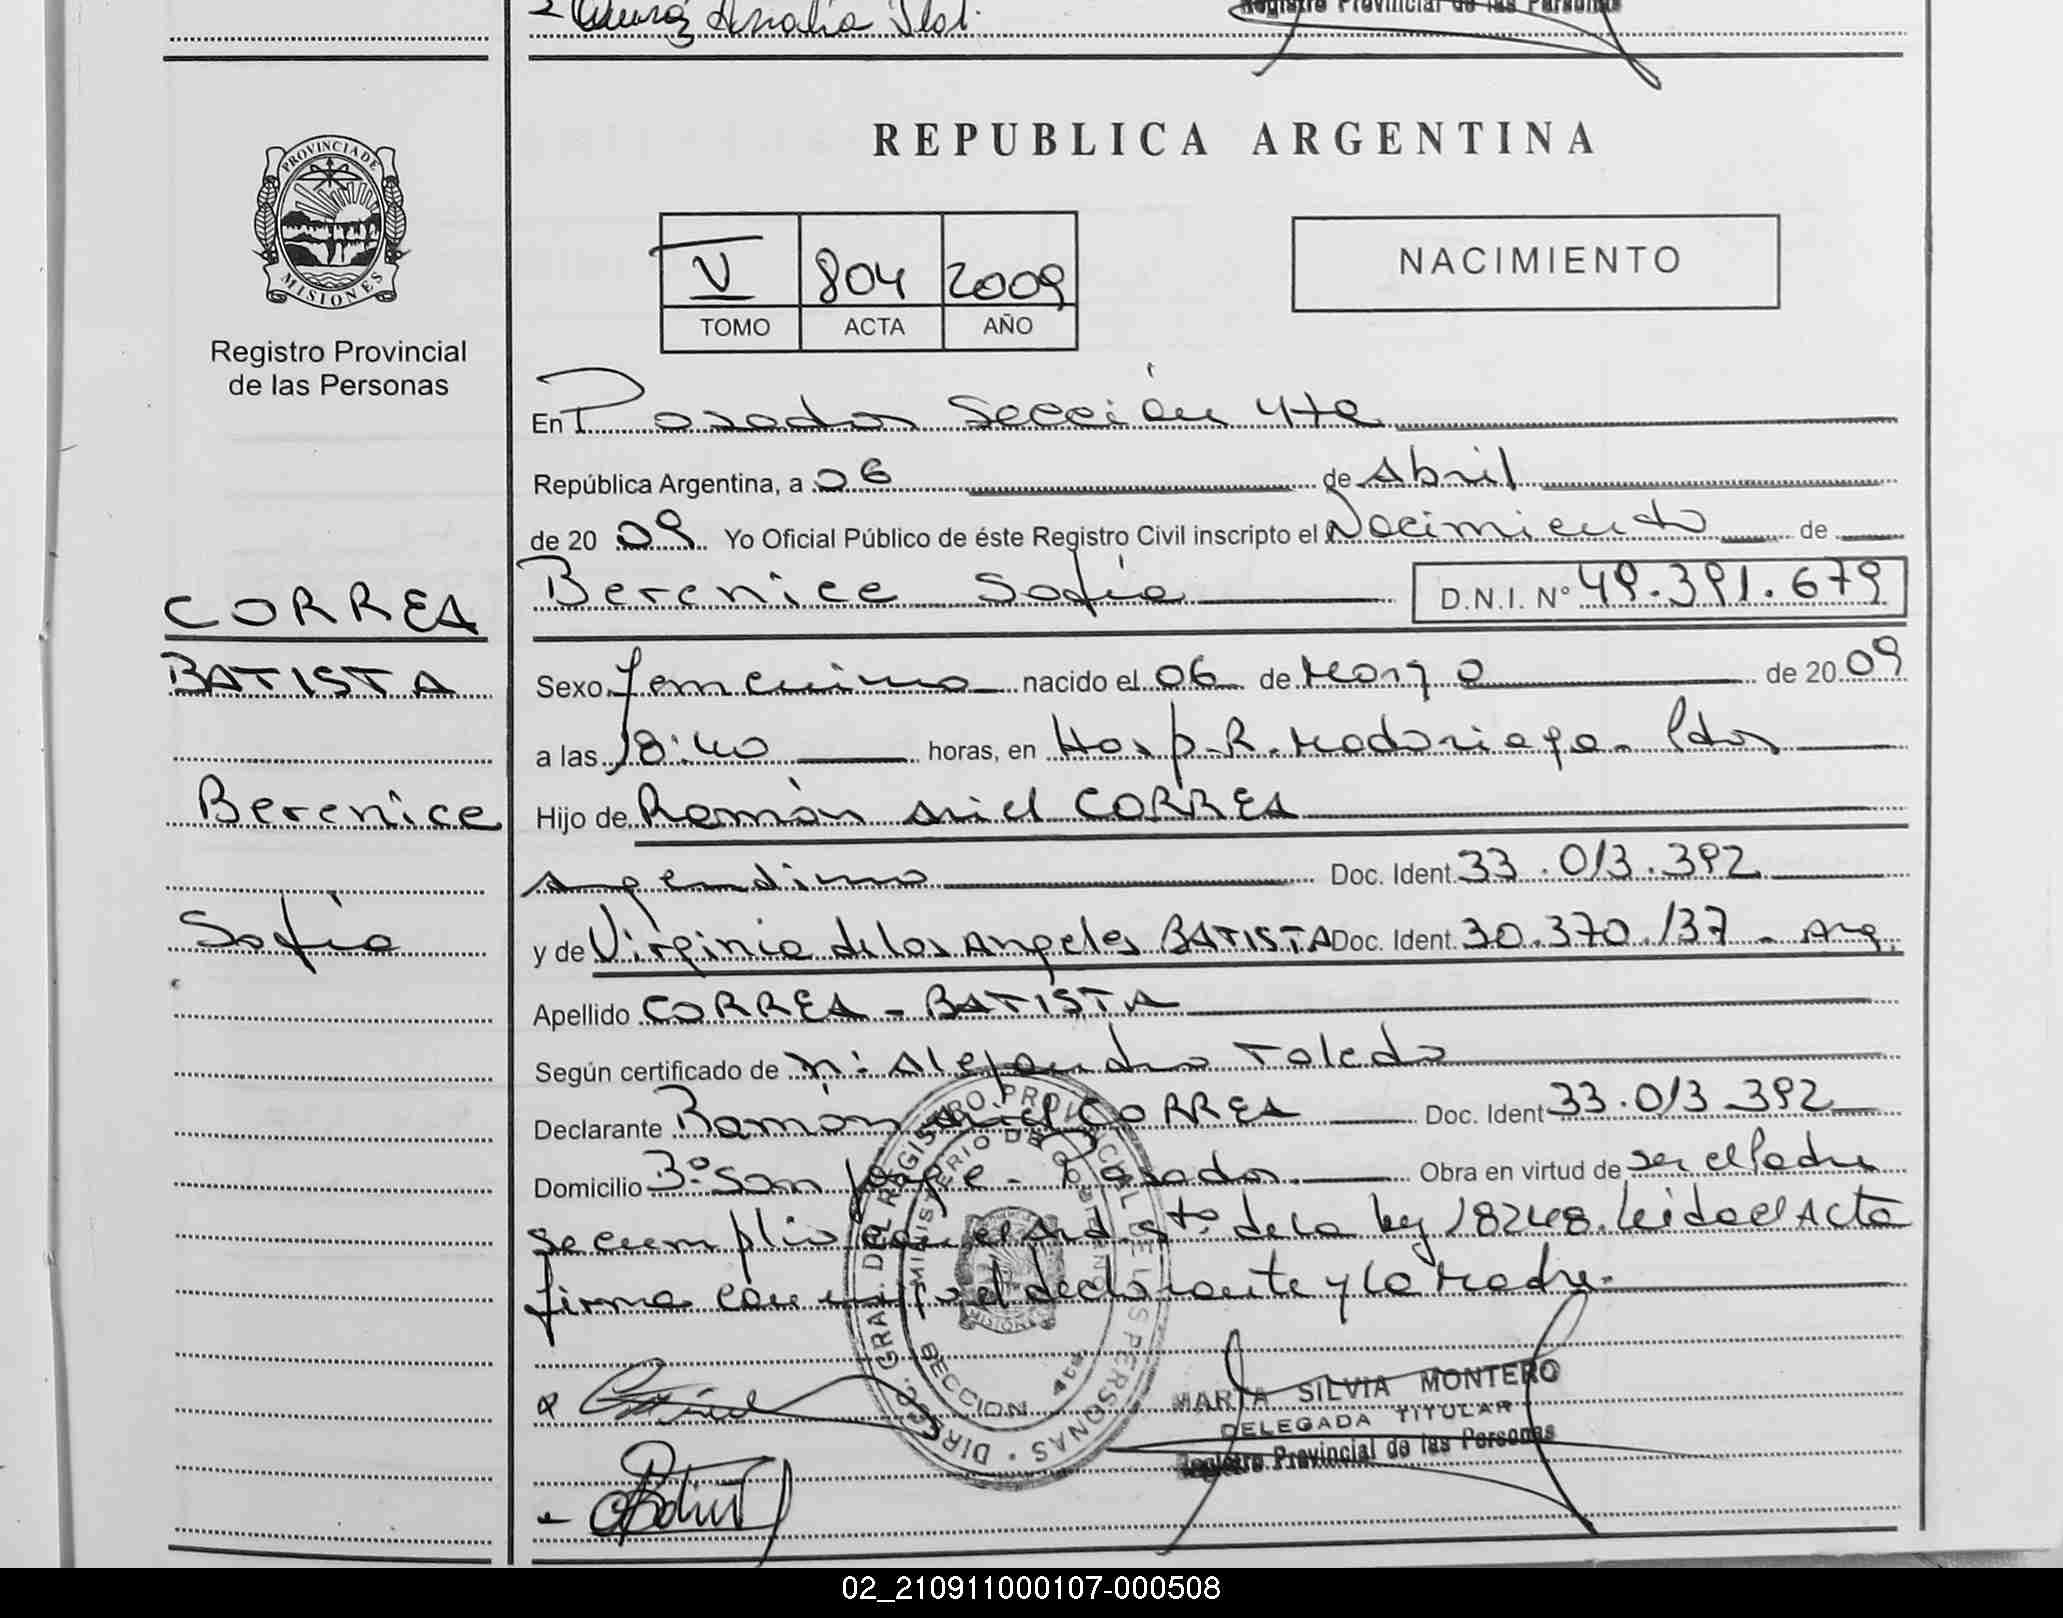 Registro Provincial de las Personas
REPUBLICA ARGENTINA
PROVINCIA DE
MISIONES
Registro Provincial
de las Personas
V 804 2009
TOMO ACTA AÑO
NACIMIENTO
En Posadas Sección 4ta
República Argentina, a 06 de Abril
de 2009 Yo Oficial Público de éste Registro Civil inscripto el Nacimiento de
CORREA
Berenice Sofía D.N.I. Nº 49.391.679
BATISTA
Sexo Femenino nacido el 06 de Marzo de 2009
a las 18:40 horas, en Hosp. R. Madariaga - Pdas
Berenice
Hijo de Ramón Ariel CORREA
Argentino Doc. Ident. 33.013.392
Sofía
y de Virginia de los Angeles BATISTA Doc. Ident. 30.370.137 - Arg.
Apellido CORREA - BATISTA
Según certificado de Alejandro Toledo
Declarante Ramón Ariel CORREA Doc. Ident 33.013.392
Domicilio Bº San Jorge - Posadas. Obra en virtud de ser el Padre
se cumplio con el Art. 5to. de la ley 18248. Leida el Acta
firma con migo el declarante y la Madre.
DIREC. GRAL. DEL REGISTRO PROVINCIAL DE LAS PERSONAS
MINISTERIO DE GOBIERNO
MISIONES
SECCION 4ta
MARTA SILVIA MONTERO
DELEGADA TITULAR
Registro Provincial de las Personas
02_210911000107-000508